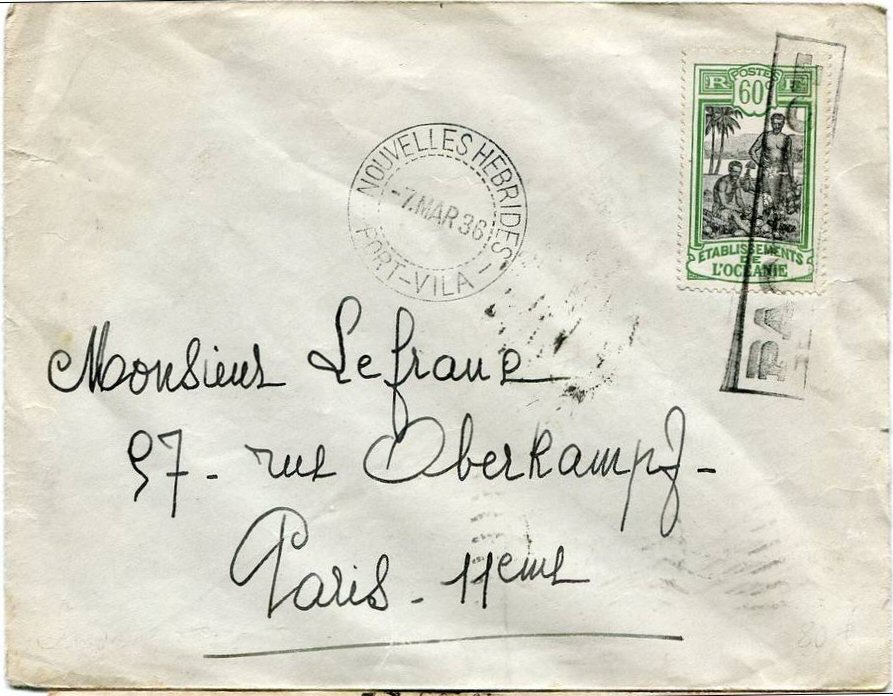 R POSTES F
60c
ETABLISSEMENTS
DE
L'OCEANIE
NOUVELLES HEBRIDES
-7.MAR 36
PORT-VILA
Monsieur Lefranc
57 - rue Oberkampf -
Paris - 11eme